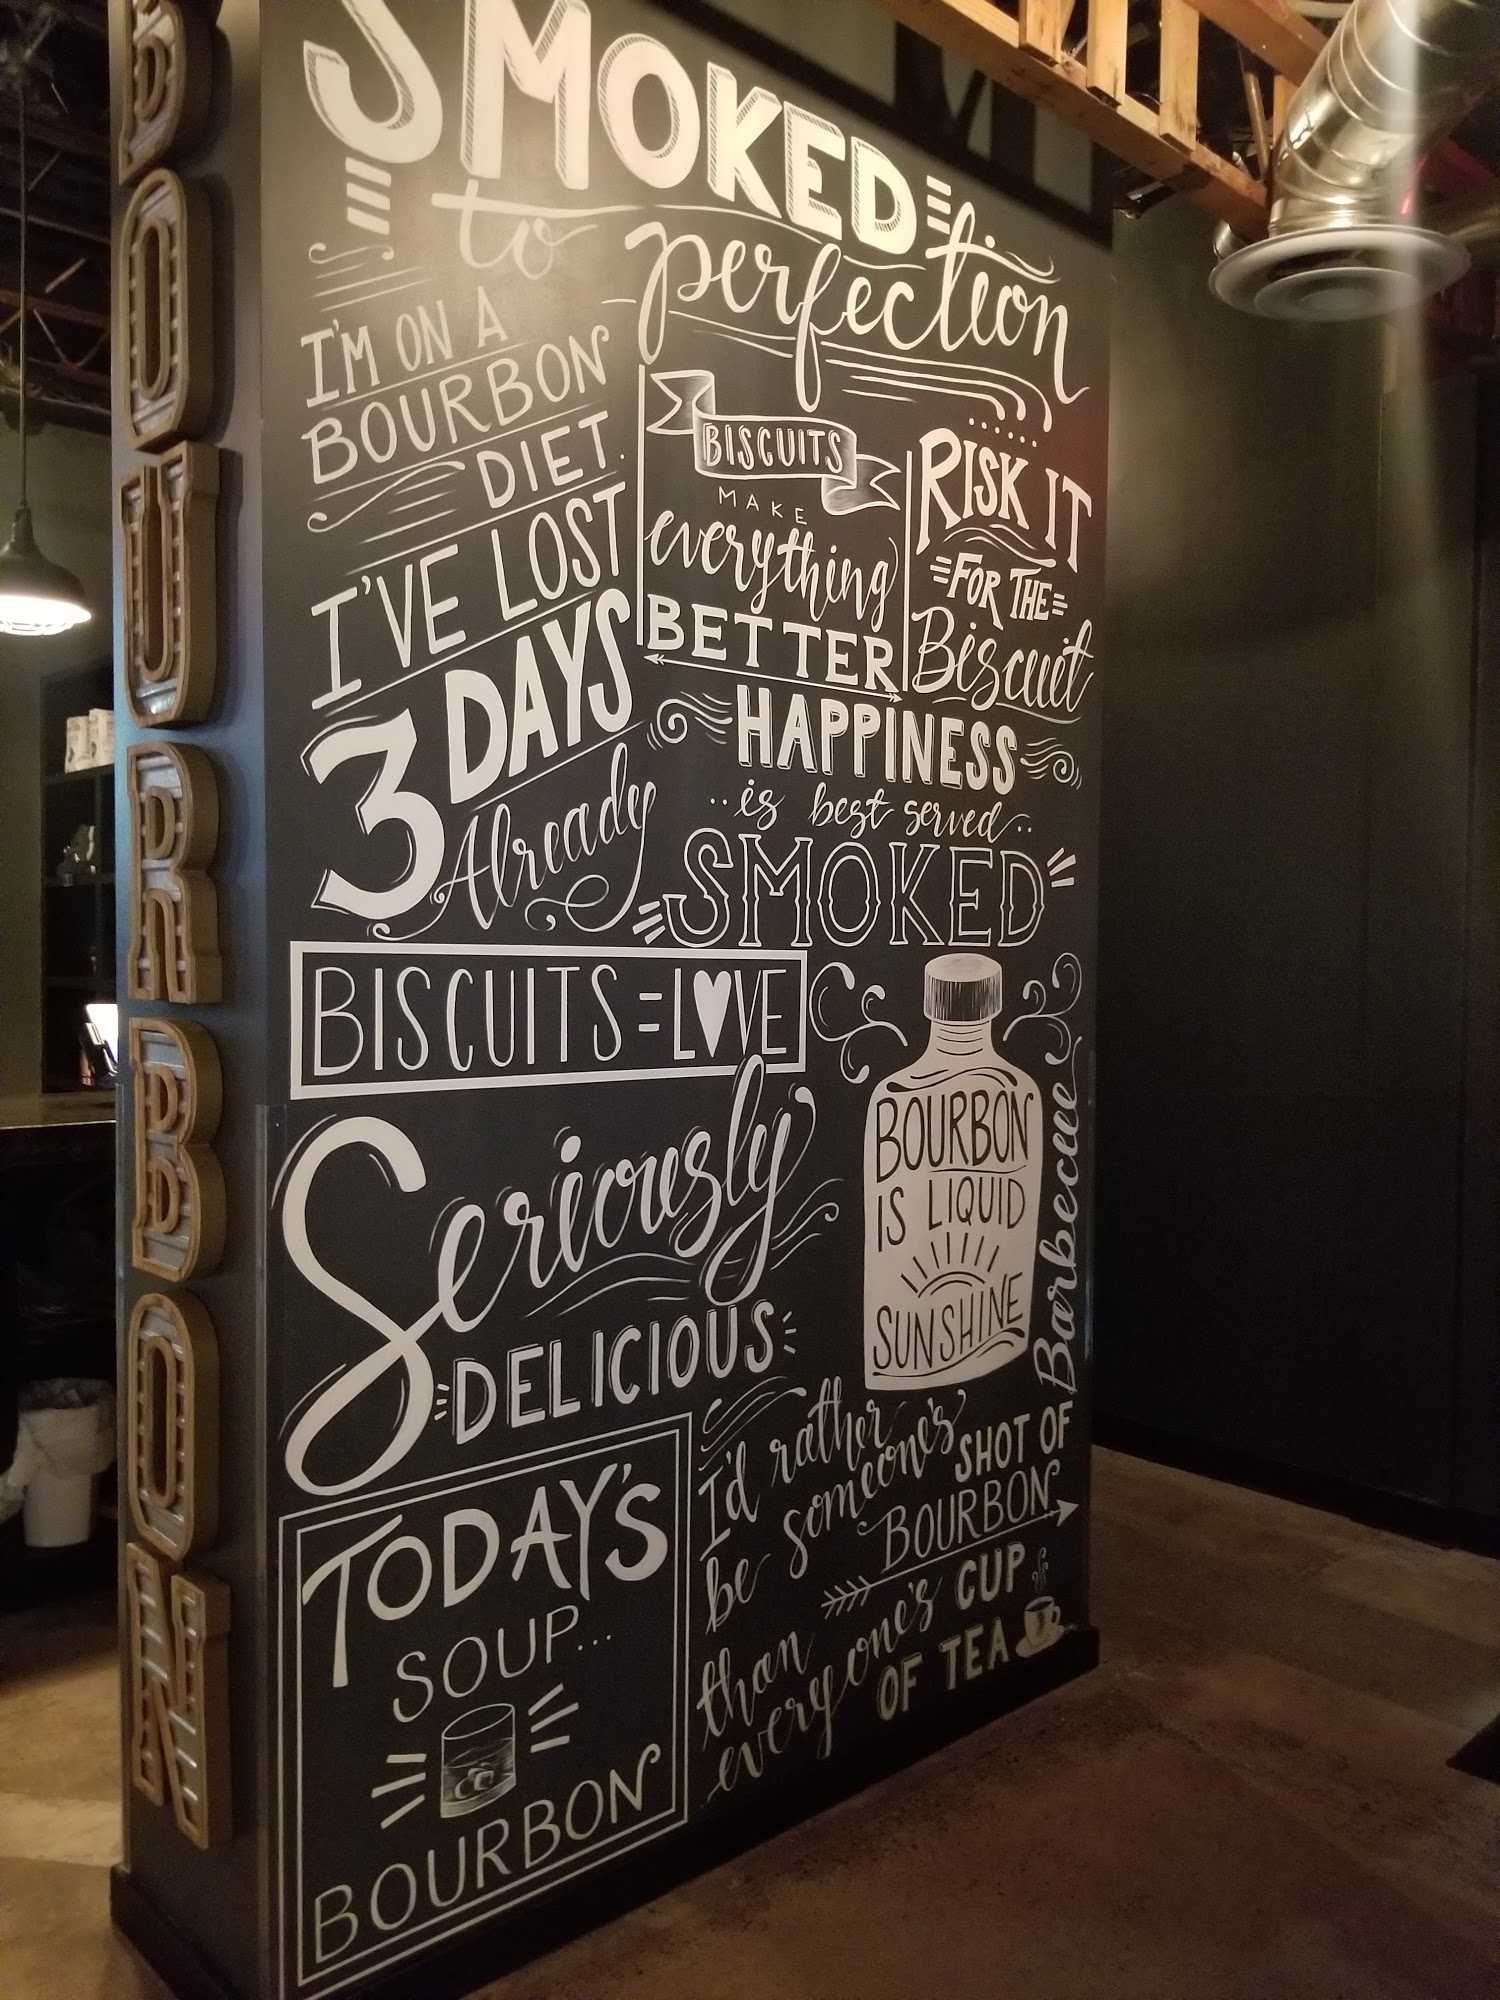 BOURBON
SMOKED
to
perfection
I'M ON A
BOURBON
DIET.
I'VE LOST
3 DAYS
Already
BISCUITS
MAKE
everything
BETTER
RISK IT
FOR THE
Biscuit
HAPPINESS
..is best served..
SMOKED
BISCUITS = L♥VE
Seriously
DELICIOUS
BOURBON
IS LIQUID
SUNSHINE
Barbecue
TODAY'S
SOUP...
BOURBON
I'd rather
be someone's
SHOT OF
BOURBON
than
everyone's CUP
OF TEA